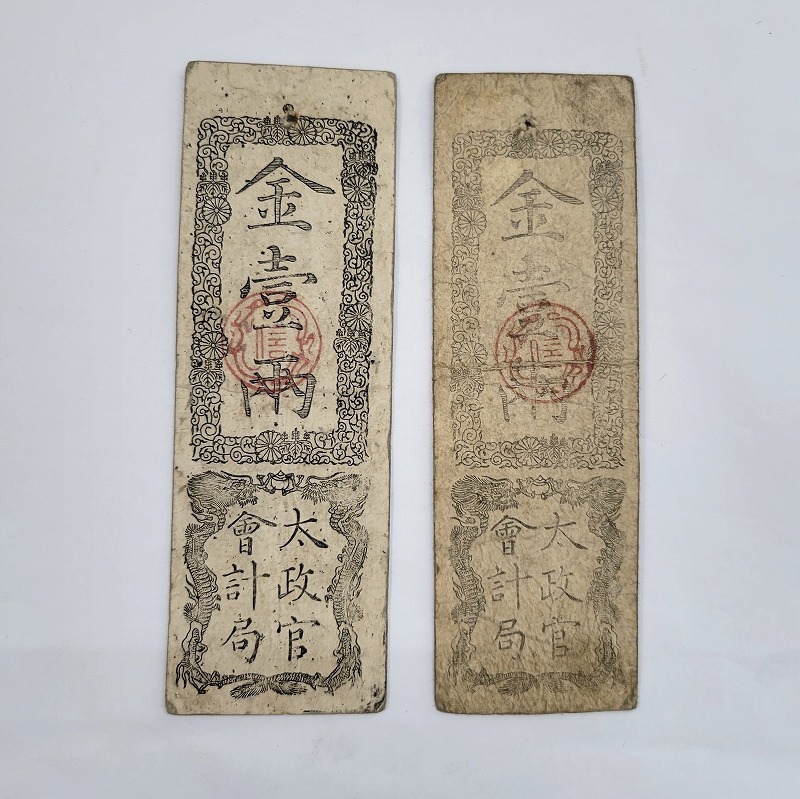 金壹兩
太政官
會計局
金壹兩
太政官
會計局